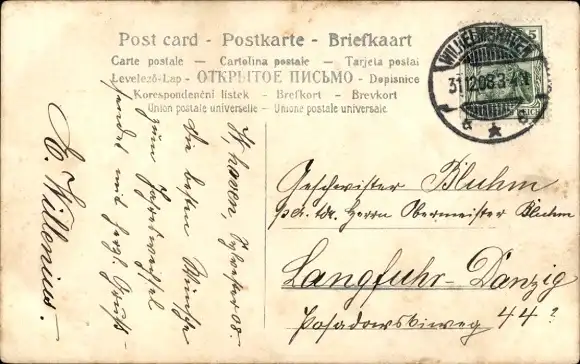 Post card - Postkarte - Briefkaart
Carte postale - Cartolina postale - Tarjeta postal
Levelező-Lap - ОТКРЫТОЕ ПИСЬМО - Dopisnice
Korespondenční lístek - Brefkort - Brevkort
Union postale universelle - Unione postale universale
WILHELMSHAVEN
31.12.08.3-4N
5
W'haven, Sylvester 08.
Die besten Wünsche
zum Jahreswechsel
sendet mit herzl. Gruß
E. Willenius.
Geschwister Bluhm
p. Adr. Herrn Obermeister Bluhm
Langfuhr-Danzig
Posadowskiweg 44?